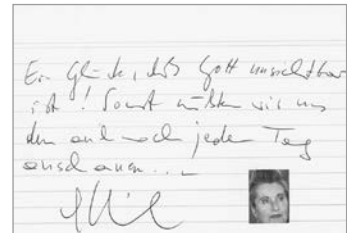 Ein Glück, daß Gott unsichtbar
ist! Sonst müßten wir uns
den auch noch jeden Tag
anschauen...